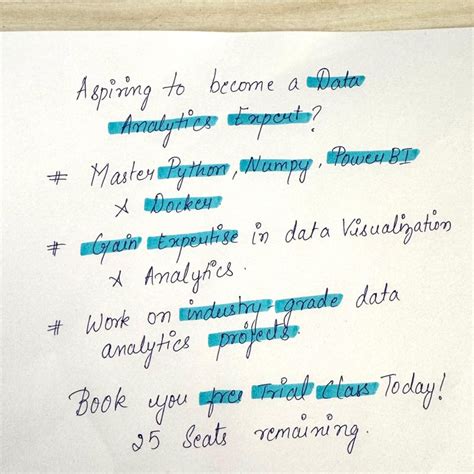 Aspiring to become a Data
Analytics Expert?
# Master Python, Numpy, PowerBI
& Docker
# Gain Expertise in data Visualization
& Analytics.
# Work on industry-grade data
analytics projects.
Book you free Trial Class Today!
25 Seats remaining.